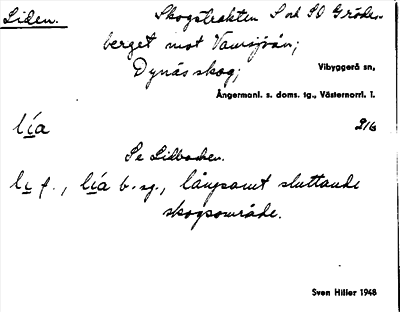 Liden. Skogstrakten S och SO Gröde-
berget mot Vamsjön;
Dynäs skog; Vibyggerå sn,
Ångermanl. s. doms. tg., Västernorrl. l.
lía 216
Se Lidbacken.
lị f., lía b. sg., långsamt sluttande
skogsområde.
Sven Hiller 1948